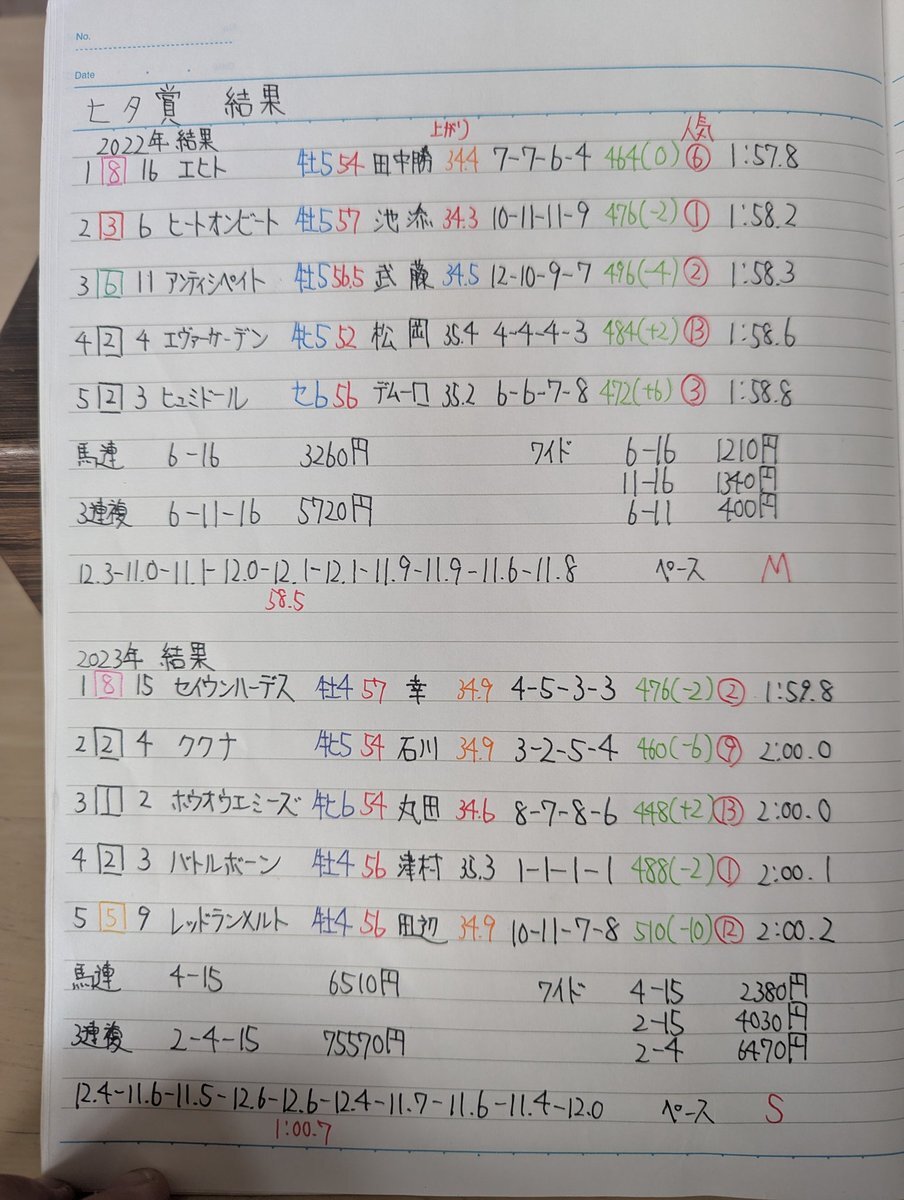 No.
Date
七夕賞 結果
2022年 結果 上がり 人気
1 8 16 エヒト 牡5 54 田中勝 34.4 7-7-6-4 464(0) ⑥ 1:57.8
2 3 6 ヒートオンビート 牡5 57 池添 34.3 10-11-11-9 476(-2) ① 1:58.2
3 6 11 アンティシペイト 牡5 56.5 武藤 34.5 12-10-9-7 496(-4) ② 1:58.3
4 2 4 エヴァーガーデン 牝5 52 松岡 35.4 4-4-4-3 484(+2) ⑬ 1:58.6
5 2 3 ヒュミドール セ6 56 デムーロ 35.2 6-6-7-8 472(+6) ③ 1:58.8
馬連 6-16 3260円 ワイド 6-16 1210円
11-16 1340円
3連複 6-11-16 5720円 6-11 400円
12.3-11.0-11.1-12.0-12.1-12.1-11.9-11.9-11.6-11.8 ペース M
58.5
2023年 結果
1 8 15 セイウンハーデス 牡4 57 幸 34.9 4-5-3-3 476(-2) ② 1:59.8
2 2 4 ククナ 牝5 54 石川 34.9 3-2-5-4 460(-6) ⑨ 2:00.0
3 1 2 ホウオウエミーズ 牝6 54 丸田 34.6 8-7-8-6 448(+2) ⑬ 2:00.0
4 2 3 バトルボーン 牡4 56 津村 35.3 1-1-1-1 488(-2) ① 2:00.1
5 5 9 レッドランメルト 牡4 56 田辺 34.9 10-11-7-8 510(-10) ⑫ 2:00.2
馬連 4-15 6510円 ワイド 4-15 2380円
2-15 4030円
3連複 2-4-15 75570円 2-4 6470円
12.4-11.6-11.5-12.6-12.6-12.4-11.7-11.6-11.4-12.0 ペース S
1:00.7